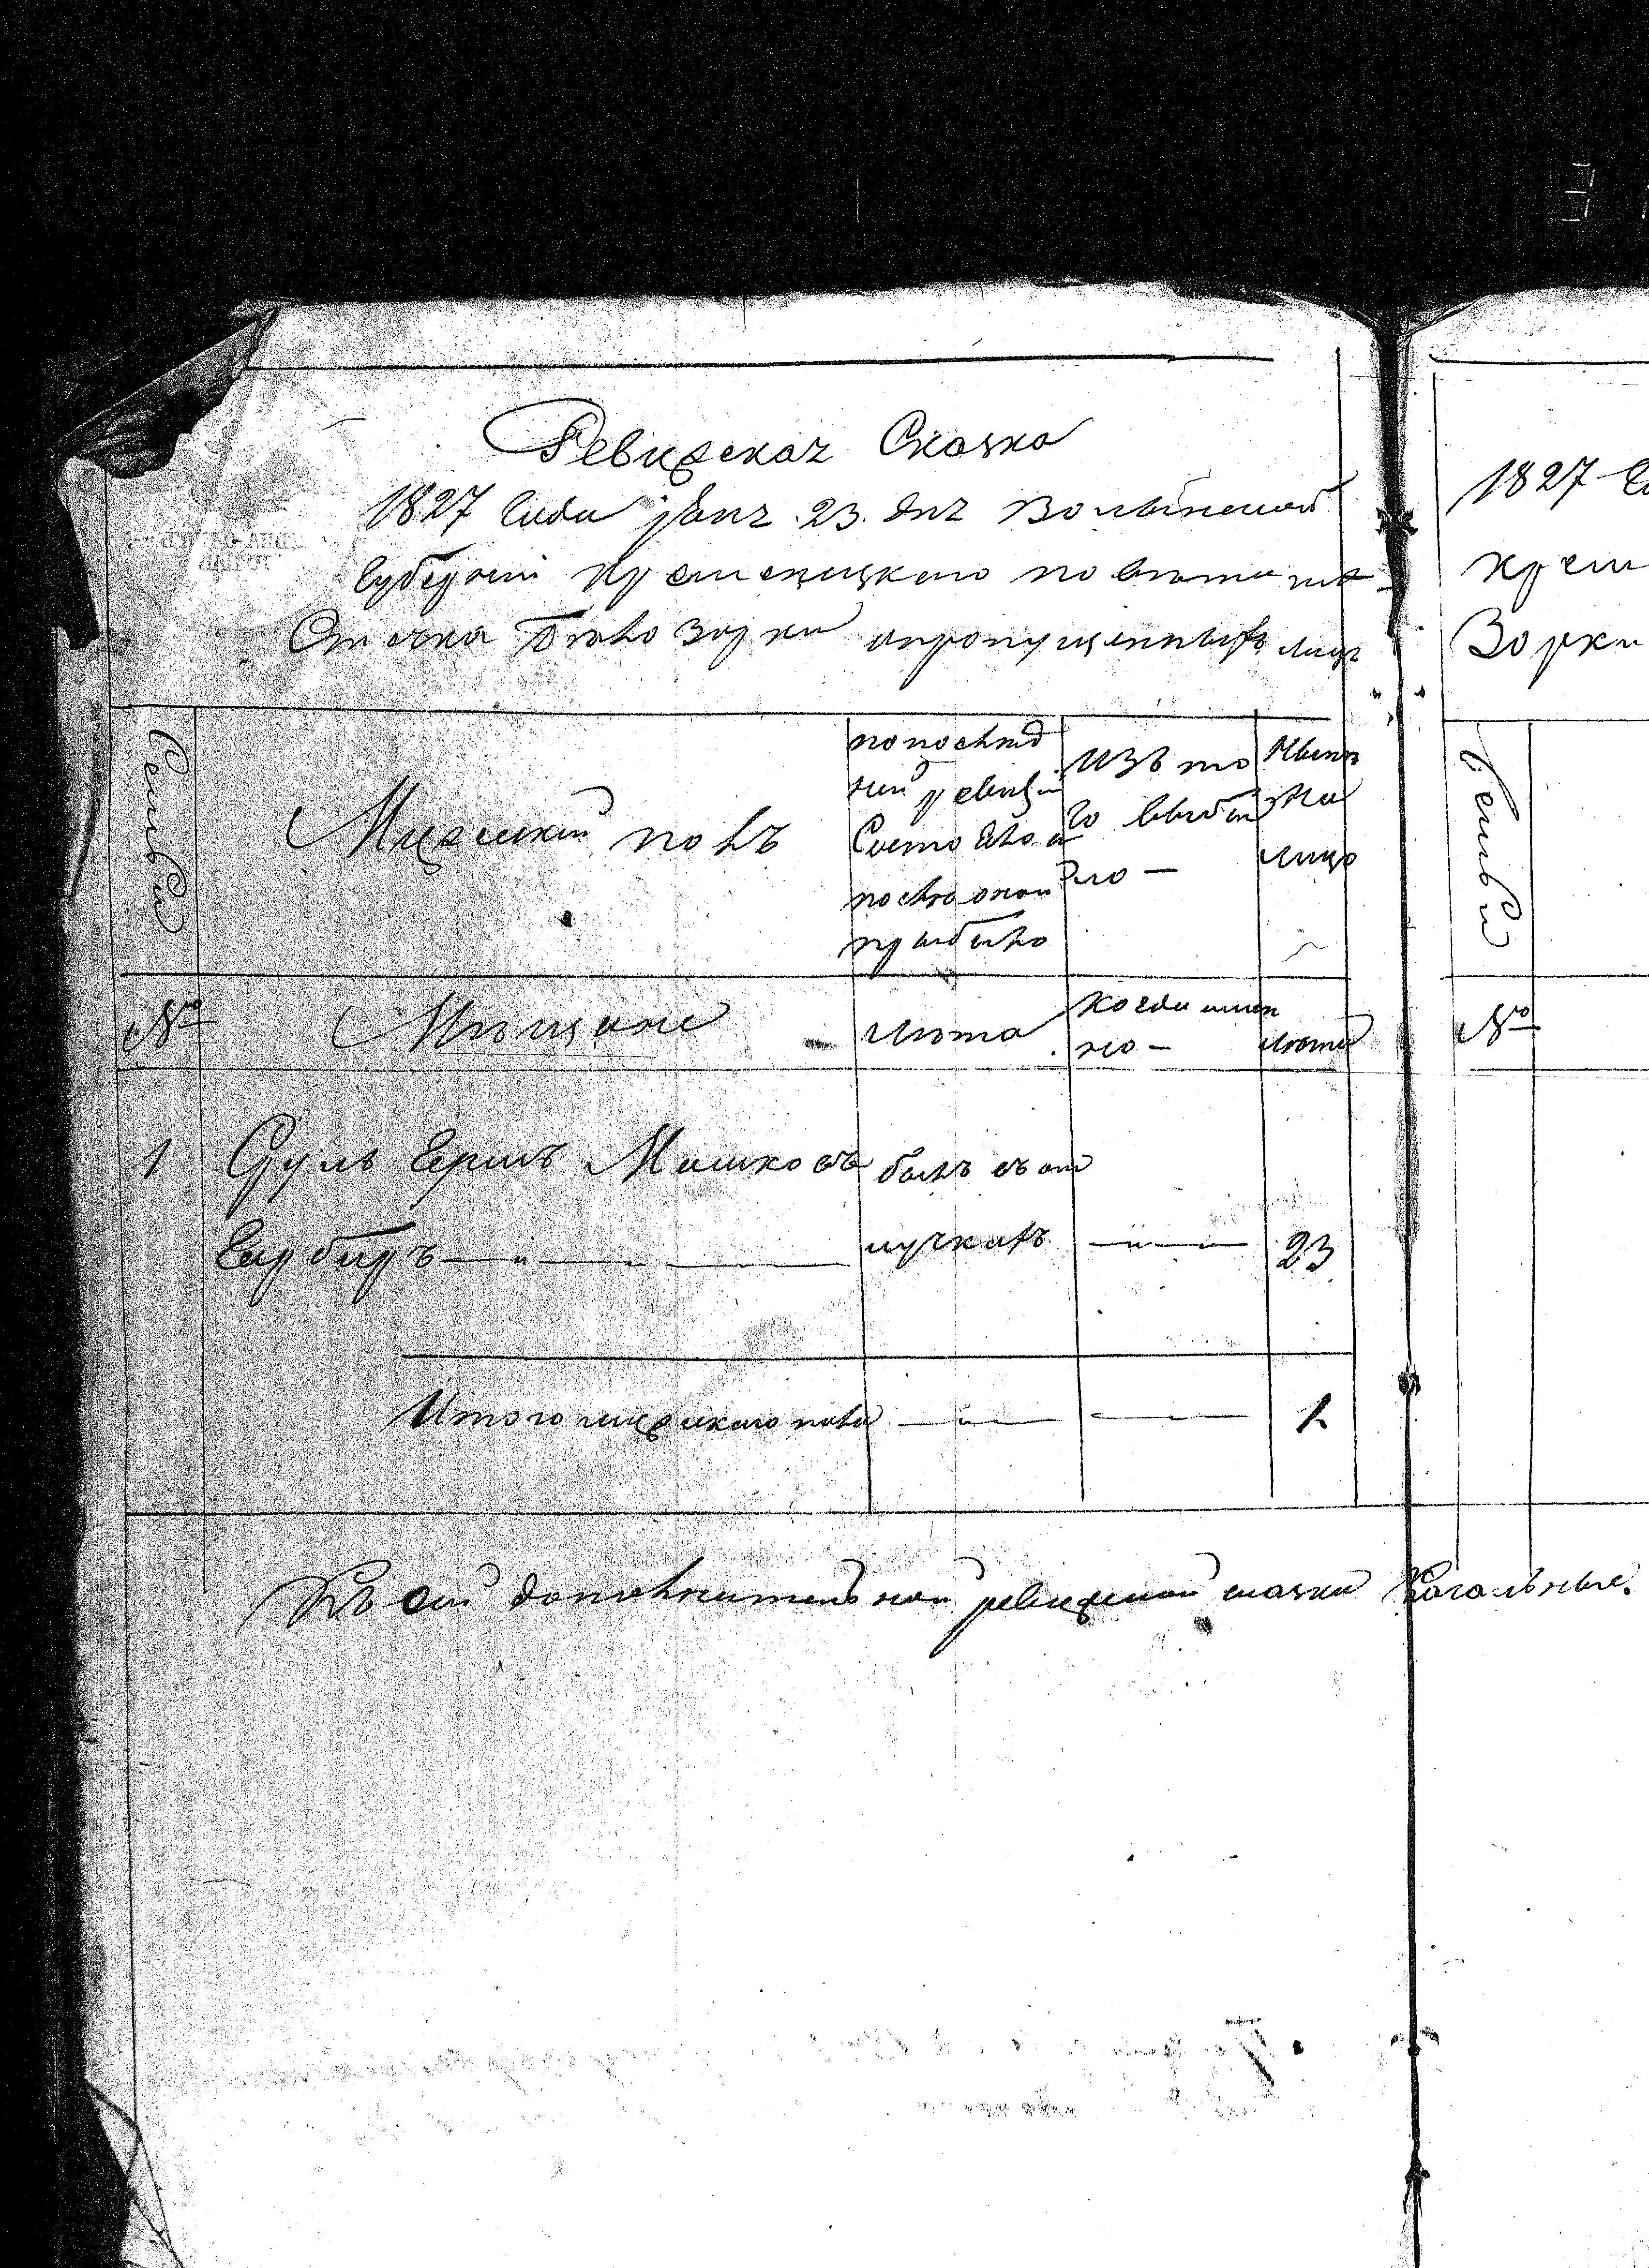 Ревизская Сказка
1827 Года Janz. 23. дня Волынской
Губерніи Кременецкаго повѣта мѣ-
стечка Бѣлозорки опропущенныхъ лицъ
Семьи
Мужеский полъ
по послѣд
ней ревизіи
Состояло и
после оной
прибыло
Изъ то
го выбы
ло —
Нынѣ
На
лицо
№
Мѣщане
Лѣта
Когда имен
но —
Лѣта
1 Сруль Герш Мошковъ былъ въ от
Гарберъ лучкахъ 23
Итого мужескаго пола 1
Къ сей дополнительной ревизкой сказки Кагальные
1827 Го
Крем
Зорки
Семьи
№